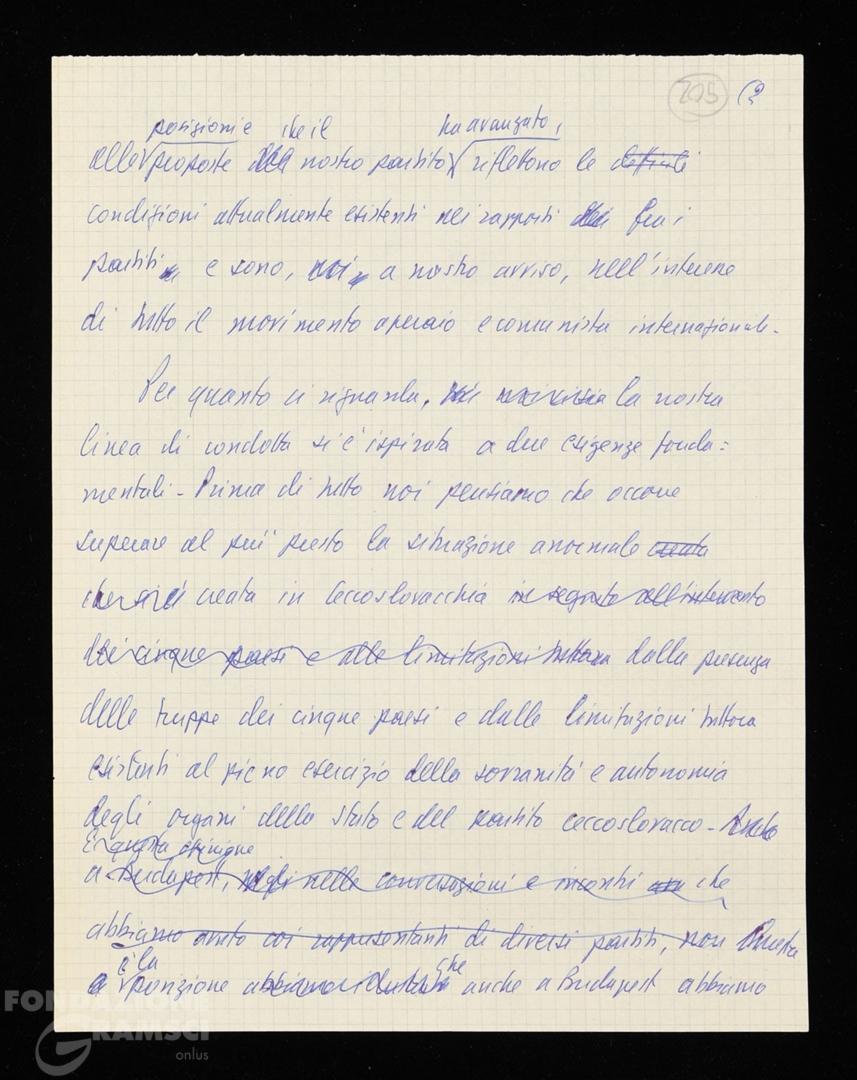 205 (2
posizioni e che il ha avanzato,
alle proposte del nostro partito riflettono le
condizioni attualmente esistenti nei rapporti fra i
partiti e sono, noi a nostro avviso, nell'interesse
di tutto il movimento operaio e comunista internazionale.
Per quanto ci riguarda, la nostra
linea di condotta si è ispirata a due esigenze fonda=
mentali. Prima di tutto noi pensiamo che occorre
superare al più presto la situazione anormale creata
che si è creata in Cecoslovacchia in seguito all'intervento
dei cinque paesi e alle limitazioni tuttora dalla presenza
delle truppe dei cinque paesi e dalle limitazioni tuttora
esistenti al pieno esercizio della sovranità e autonomia
degli organi dello Stato e del partito cecoslovacco.
E questa
a Budapest, nelle conversazioni e incontri che
abbiamo avuto coi rappresentanti di diversi partiti, non
è la che
posizione anche a Budapest abbiamo
FONDAZIONE
GRAMSCI
onlus